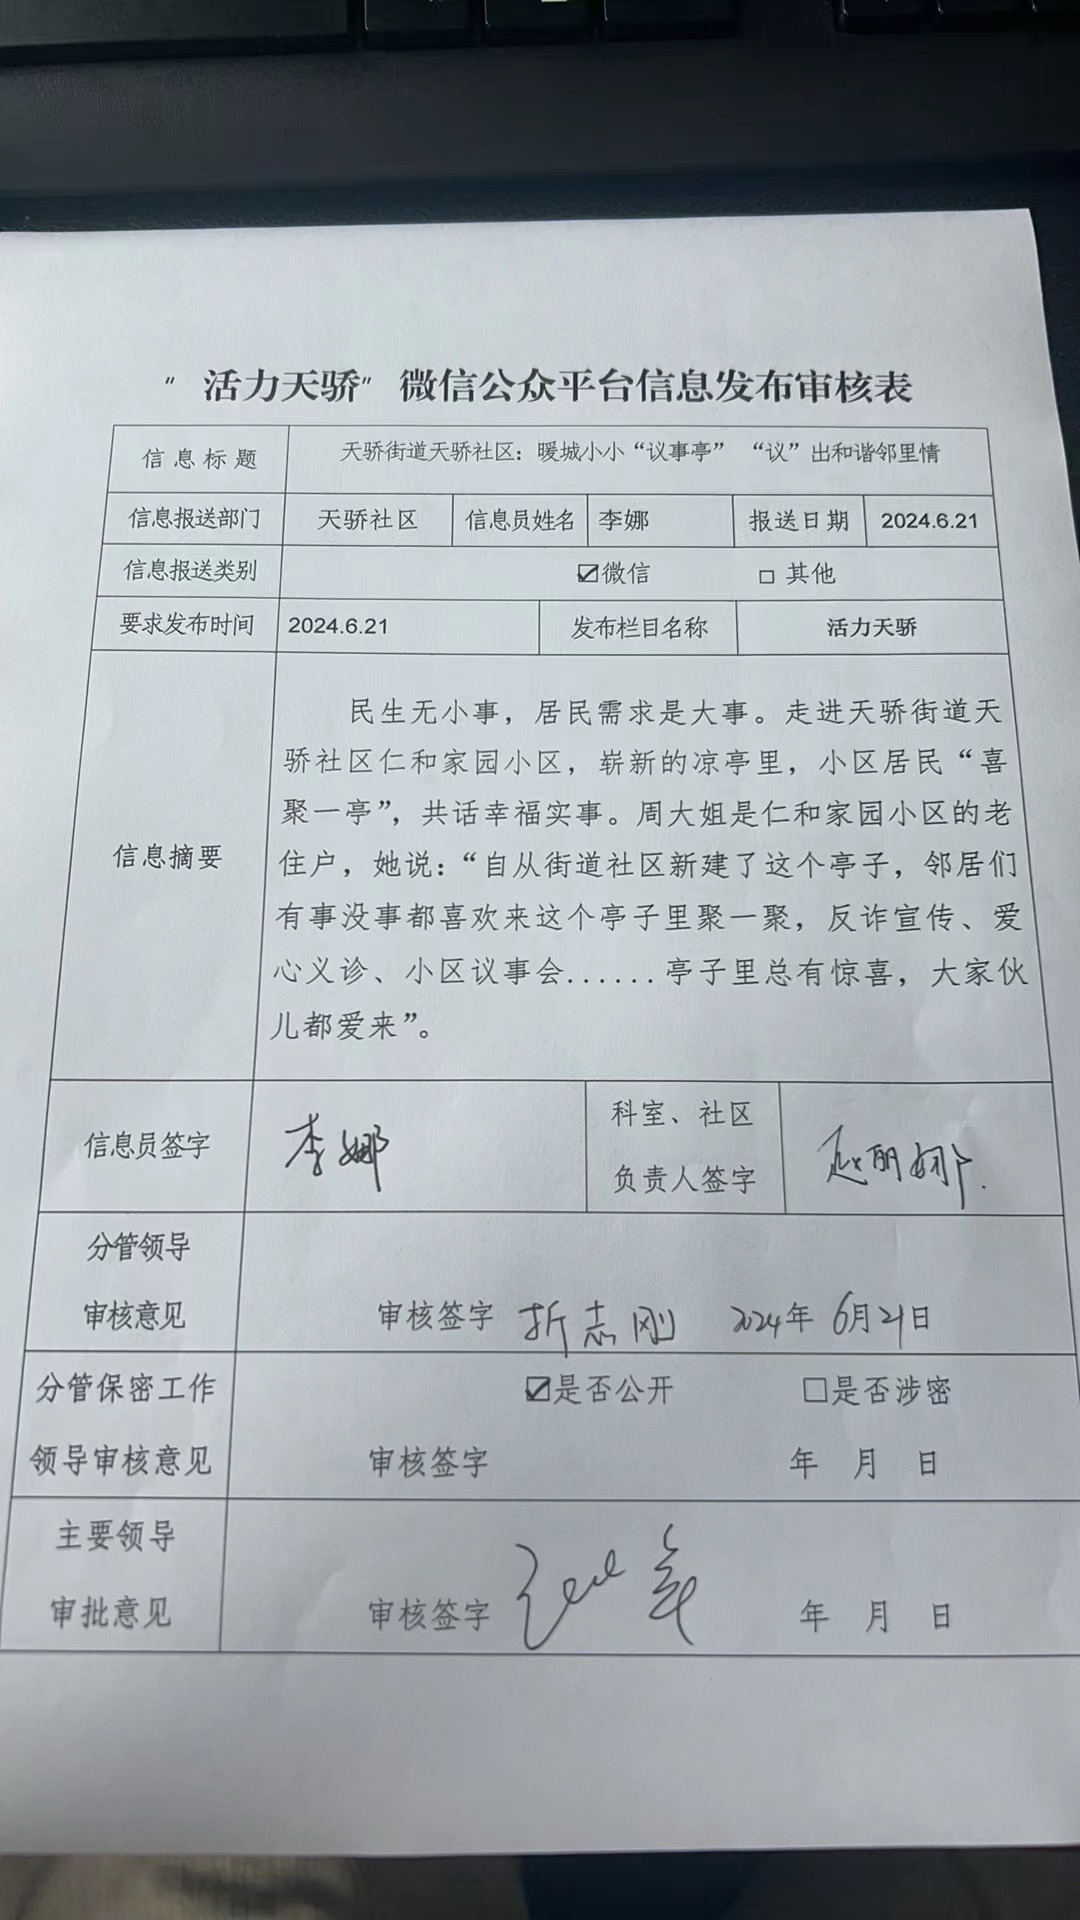 “活力天骄”微信公众平台信息发布审核表
信息标题 天骄街道天骄社区：暖城小小“议事亭” “议”出和谐邻里情
信息报送部门 天骄社区 信息员姓名 李娜 报送日期 2024.6.21
信息报送类别 ☑微信 □其他
要求发布时间 2024.6.21 发布栏目名称 活力天骄
信息摘要
民生无小事，居民需求是大事。走进天骄街道天
骄社区仁和家园小区，崭新的凉亭里，小区居民“喜
聚一亭”，共话幸福实事。周大姐是仁和家园小区的老
住户，她说：“自从街道社区新建了这个亭子，邻居们
有事没事都喜欢来这个亭子里聚一聚，反诈宣传、爱
心义诊、小区议事会......亭子里总有惊喜，大家伙
儿都爱来”。
信息员签字 李娜
科室、社区
负责人签字 赵丽娜
分管领导
审核意见 审核签字 折志刚 2024年 6月21日
分管保密工作 ☑是否公开 □是否涉密
领导审核意见 审核签字 年 月 日
主要领导
审批意见 审核签字 年 月 日